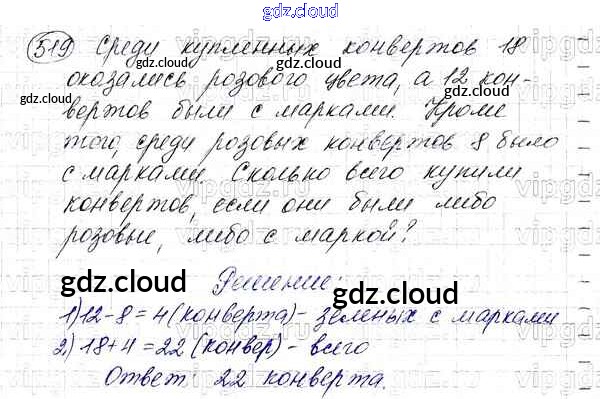 gdz.cloud
519 Среди купленных конвертов 18
оказались розового цвета, а 12 кон-
вертов были с марками. Кроме
того, среди розовых конвертов 8 было
с марками. Сколько всего купили
конвертов, если они были либо
розовые, либо с маркой?
Решение:
1) 12-8=4 (конверта) - зеленых с марками
2) 18+4=22 (конвер) - всего
Ответ 22 конверта.
gdz.cloud
gdz.cloud
gdz.cloud
gdz.cloud
gdz.cloud
gdz.cloud
gdz.cloud